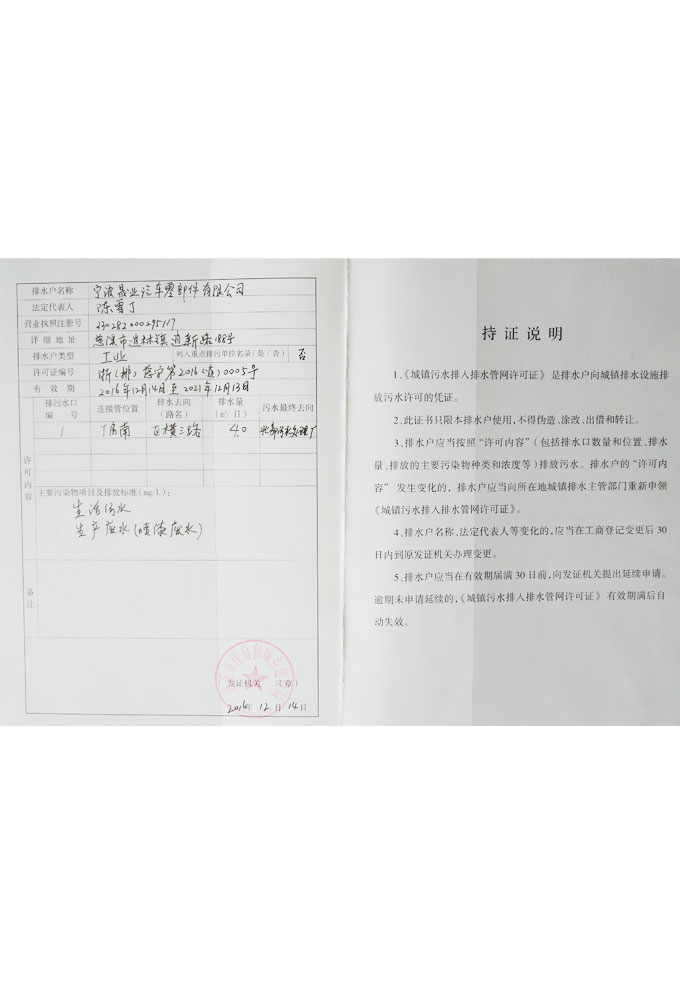 排水户名称 宁波晟业汽车零部件有限公司
法定代表人 陈雪丁
营业执照注册号 330282000295117
详细地址 慈溪市道林镇逍新路188号
排水户类型 工业 列入重点排污单位名录(是/否) 否
许可证编号 浙(排)慈字第2016(道)0005号
有效期 2016年12月14日至2021年12月13日
许可内容
排污水口编号 连接管位置 排水去向(路名) 排水量(m³/日) 污水最终去向
1 厂房南 区横二路 4.0 北部污水处理厂
主要污染物项目及排放标准(mg/L):
生活污水
生产废水(喷漆废水)
备注
发证机关 (章)
2016年 12 月 14 日
持证说明
1、《城镇污水排入排水管网许可证》是排水户向城镇排水设施排
放污水许可的凭证。
2、此证书只限本排水户使用,不得伪造、涂改、出借和转让。
3、排水户应当按照“许可内容”(包括排水口数量和位置、排水
量、排放的主要污染物种类和浓度等)排放污水。排水户的“许可内
容”发生变化的,排水户应当向所在地城镇排水主管部门重新申领
《城镇污水排入排水管网许可证》。
4、排水户名称、法定代表人等变化的,应当在工商登记变更后30
日内到原发证机关办理变更。
5、排水户应当在有效期届满30日前,向发证机关提出延续申请。
逾期未申请延续的,《城镇污水排入排水管网许可证》有效期满后自
动失效。